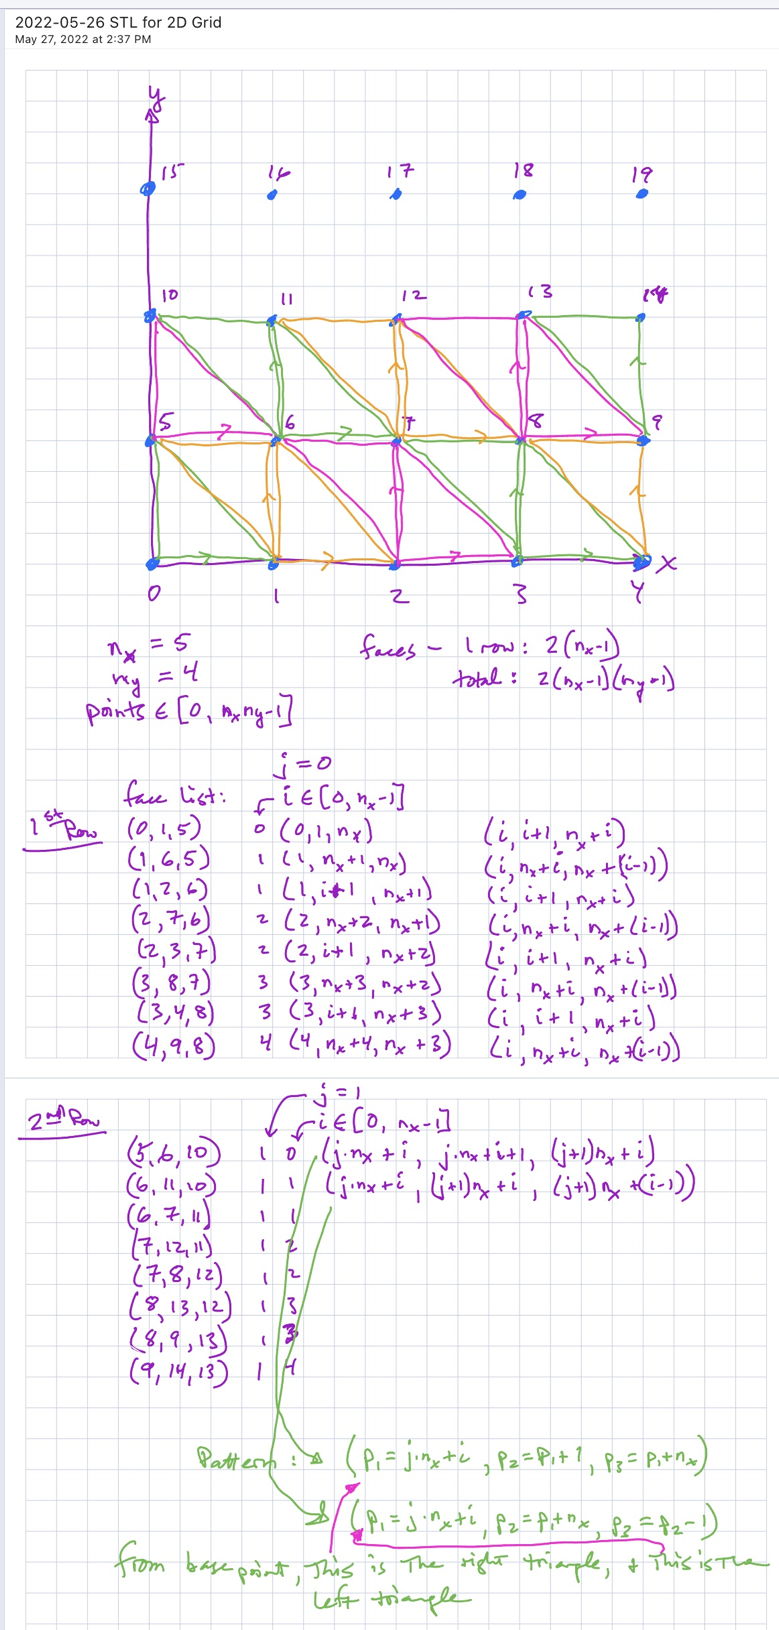 2022-05-26 STL for 2D Grid
May 27, 2022 at 2:37 PM
y
15 16 17 18 19
10 11 12 13 14
5 6 7 8 9
x
0 1 2 3 4
nx = 5
ny = 4
points ∈ [0, nxny-1]
faces - 1 row: 2(nx-1)
total: 2(nx-1)(ny-1)
j = 0
face list: i ∈ [0, nx-1]
1st Row (0,1,5) 0 (0,1,nx) (i, i+1, nx+i)
(1,6,5) 1 (1, nx+1, nx) (i, nx+i, nx+(i-1))
(1,2,6) 1 (1, i+1, nx+1) (i, i+1, nx+i)
(2,7,6) 2 (2, nx+2, nx+1) (i, nx+i, nx+(i-1))
(2,3,7) 2 (2, i+1, nx+2) (i, i+1, nx+i)
(3,8,7) 3 (3, nx+3, nx+2) (i, nx+i, nx+(i-1))
(3,4,8) 3 (3, i+1, nx+3) (i, i+1, nx+i)
(4,9,8) 4 (4, nx+4, nx+3) (i, nx+i, nx+(i-1))
j = 1
2nd Row i ∈ [0, nx-1]
(5,6,10) 1 0 (j·nx+i, j·nx+i+1, (j+1)nx+i)
(6,11,10) 1 1 (j·nx+i, (j+1)nx+i, (j+1)nx+(i-1))
(6,7,11) 1 1
(7,12,11) 1 2
(7,8,12) 1 2
(8,13,12) 1 3
(8,9,13) 1 3
(9,14,13) 1 4
Pattern: (p1=j·nx+i, p2=p1+1, p3=p1+nx)
(p1=j·nx+i, p2=p1+nx, p3=p2-1)
from base point, This is The right triangle, + This is The
left triangle